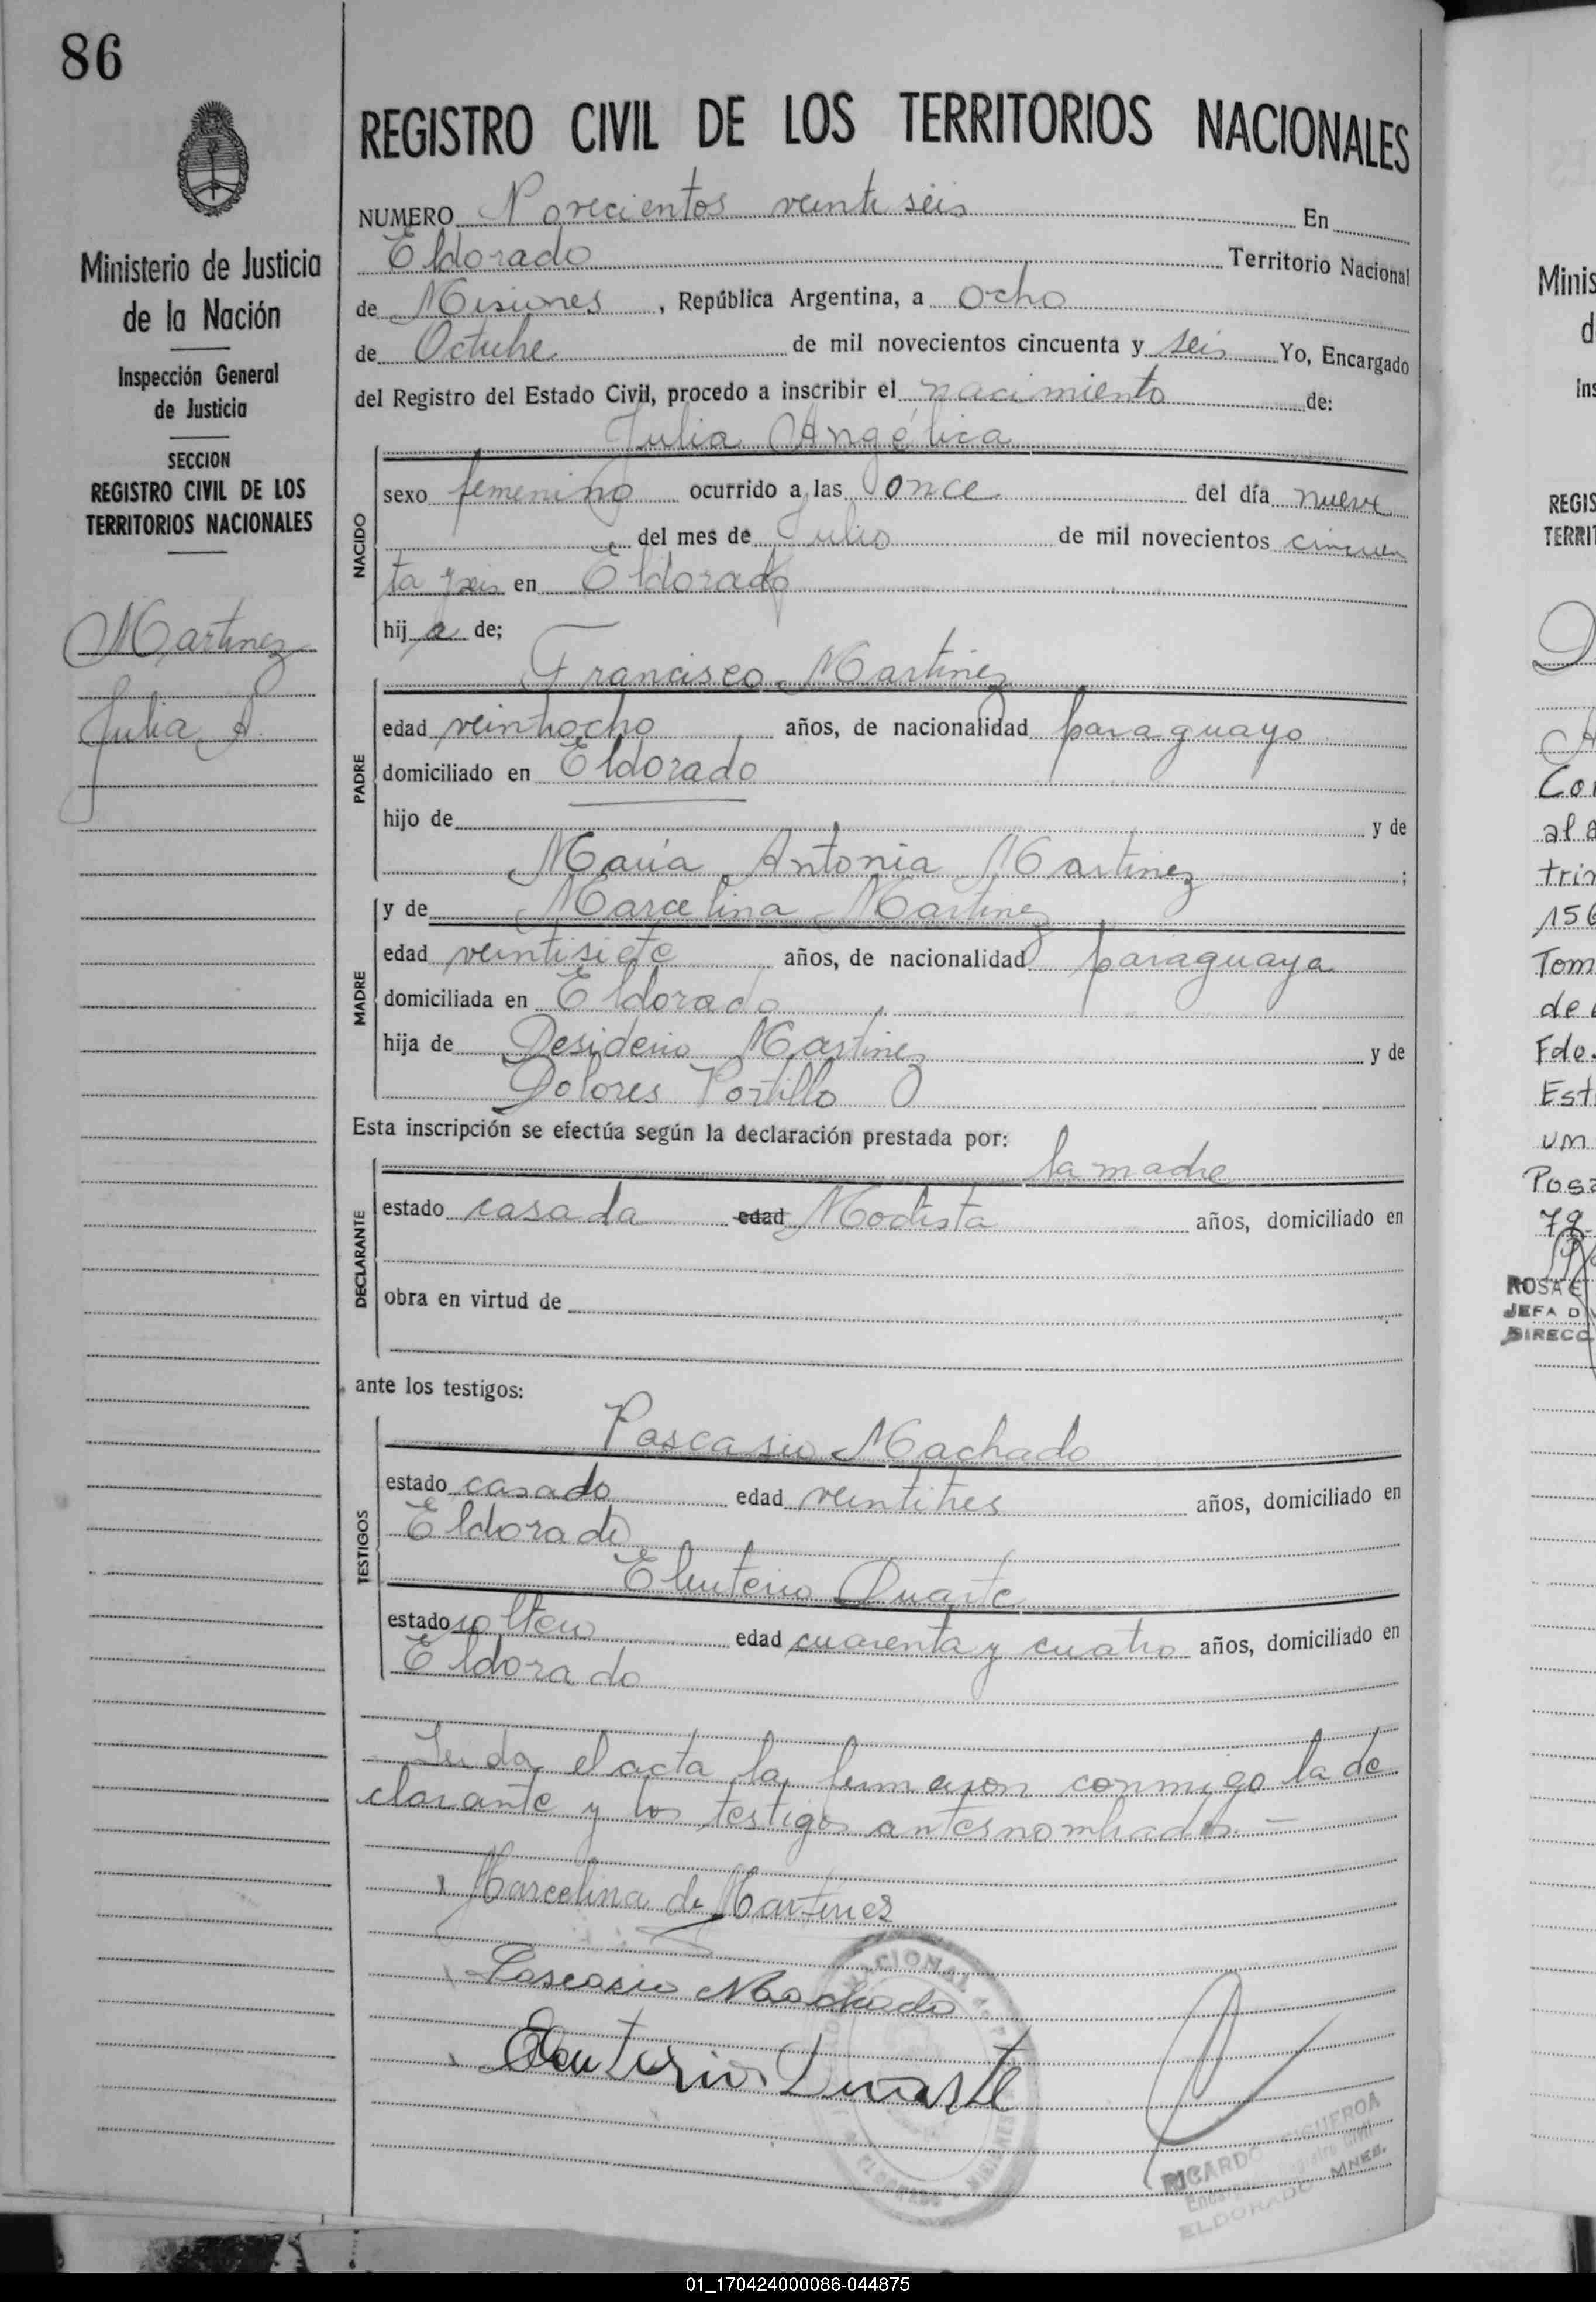 86
REGISTRO CIVIL DE LOS TERRITORIOS NACIONALES
Ministerio de Justicia
de la Nación
Inspección General
de Justicia
SECCION
REGISTRO CIVIL DE LOS
TERRITORIOS NACIONALES
Martinez
Julia A.
NUMERO Novecientos veinti seis En
Eldorado Territorio Nacional
de Misiones, República Argentina, a ocho
de Octubre de mil novecientos cincuenta y seis Yo, Encargado
del Registro del Estado Civil, procedo a inscribir el nacimiento de:
Julia Angélica
NACIDO
sexo femenino ocurrido a las once del día nueve
del mes de Julio de mil novecientos cincuen
ta y seis en Eldorado
hij a de;
Francisco Martinez
PADRE
edad veintiocho años, de nacionalidad paraguayo
domiciliado en Eldorado
hijo de y de
Maria Antonia Martinez ;
y de Marcelina Martinez
MADRE
edad veintisiete años, de nacionalidad paraguaya
domiciliada en Eldorado
hija de Desiderio Martinez y de
Dolores Portillo
Esta inscripción se efectúa según la declaración prestada por:
la madre
DECLARANTE
estado casada edad Modista años, domiciliado en
obra en virtud de
ante los testigos:
Pascasio Machado
TESTIGOS
estado casado edad veintitres años, domiciliado en
Eldorado
Eleuterio Duarte
estado soltero edad cuarenta y cuatro años, domiciliado en
Eldorado
Leida el acta la firmaron conmigo la de
clarante y los testigos antesnombrados.—
Marcelina de Martinez
Pascasio Machado
Eleuterio Duarte
RICARDO FIGUEROA
ELDORADO MNES.
Minis
d
Ins
REGIS
TERRIT
Co
al
trin
156
Tom
de
Fdo.
Est
un
Posa
79
ROSA E
JEFA DIV
DIRECC
01_170424000086-044875